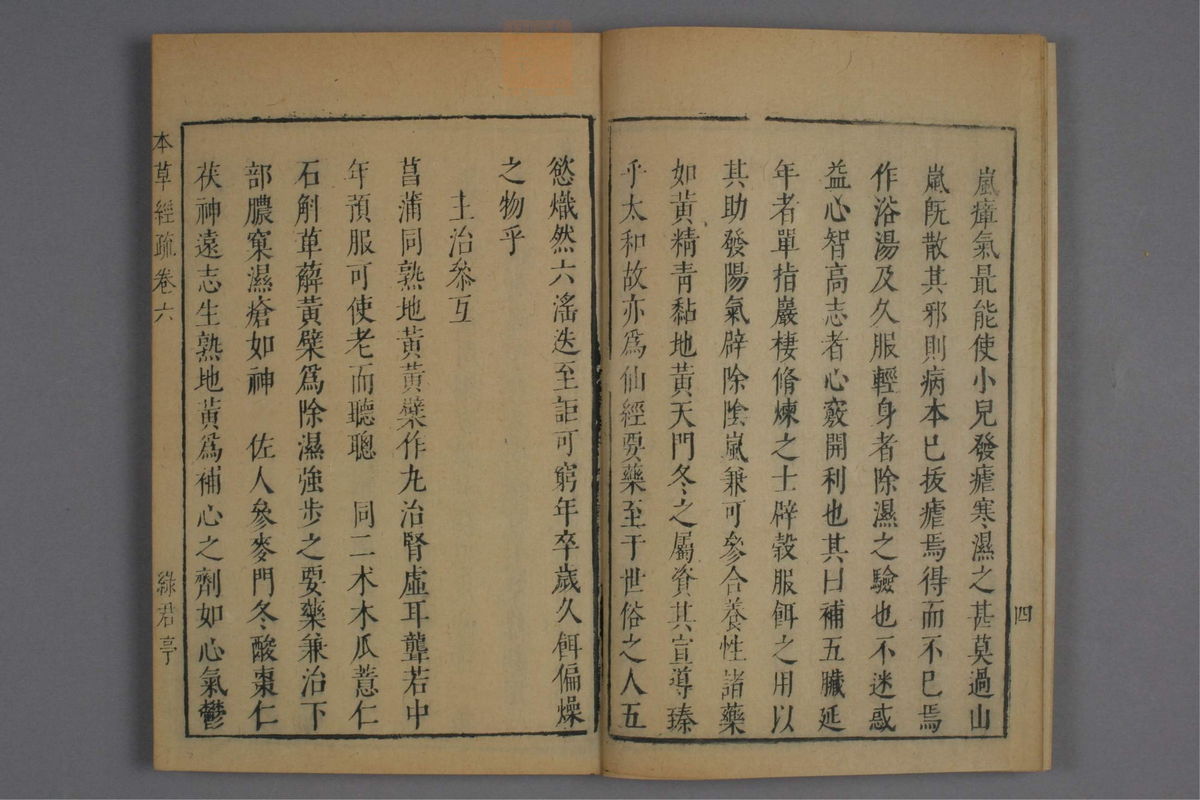 四
嵐瘴氣最能使小兒發瘧寒濕之甚莫過山
嵐旣散其邪則病本已拔瘧焉得而不已焉
作浴湯及久服輕身者除濕之驗也不迷惑
益心智高志者心竅開利也其曰補五臟延
年者單指巖棲脩煉之士辟穀服餌之用以
其助發陽氣辟除陰嵐兼可參合養性諸藥
如黃精靑黏地黃天門冬之屬資其宣導臻
乎太和故亦爲仙經要藥至于世俗之人五
慾熾然六淫迭至詎可窮年卒歲久餌偏燥
之物乎
主治叅互
菖蒲同熟地黃黃檗作丸治腎虛耳聾若中
年預服可使老而聽聰　同二术木瓜薏仁
石斛萆薢黃檗爲除濕強步之要藥兼治下
部膿窠濕瘡如神　佐人參麥門冬酸棗仁
茯神遠志生熟地黃爲補心之劑如心氣鬱
本草經疏卷六
綠君亭